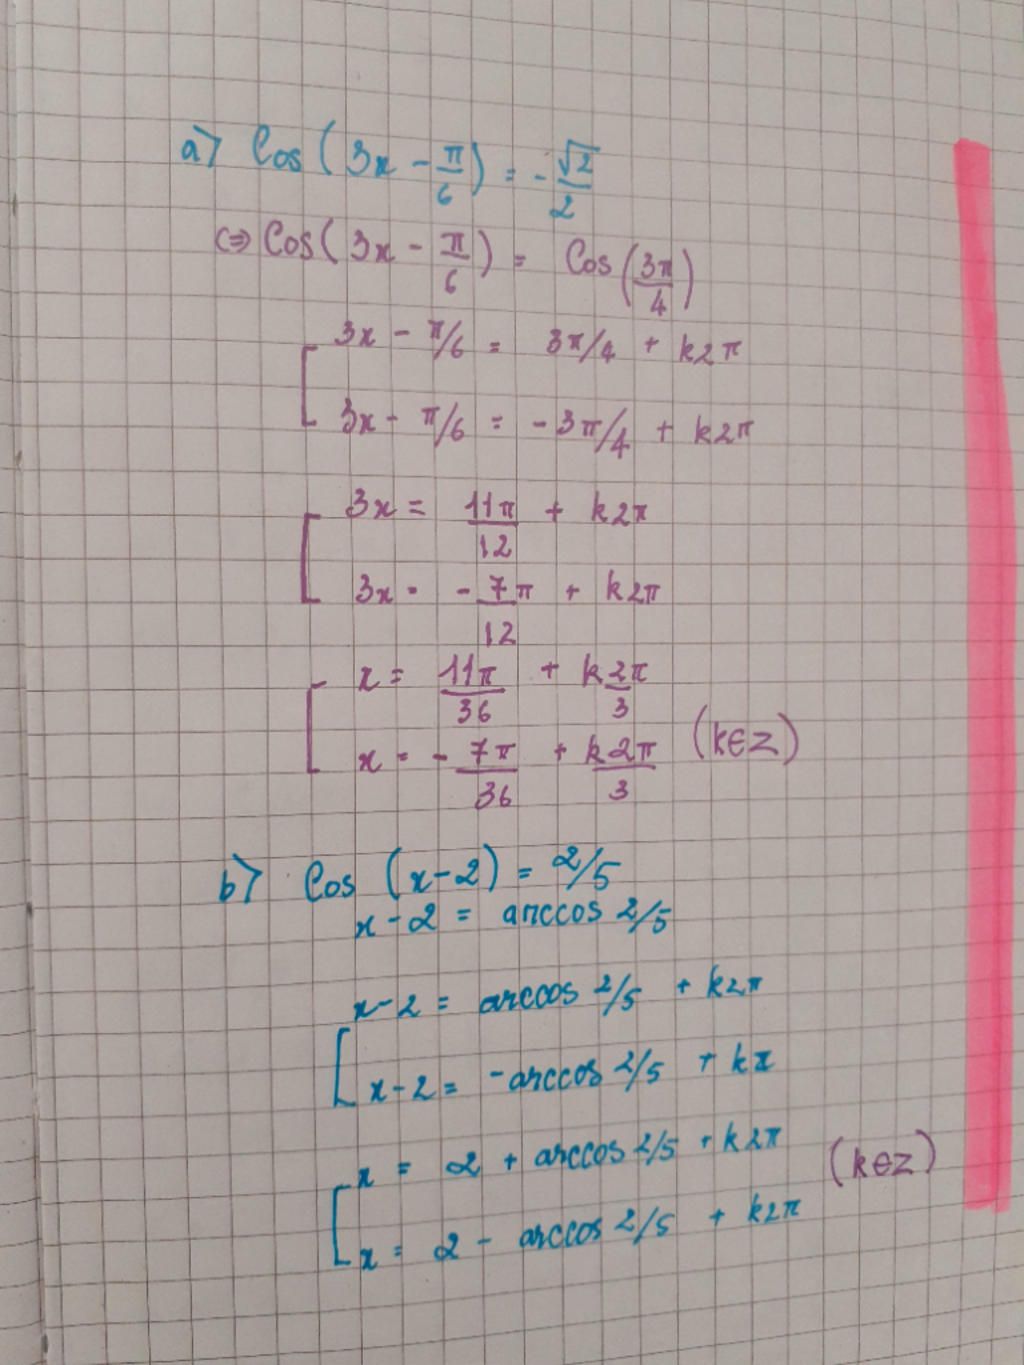 a) Cos(3x - π/6) = -√2/2
<=> Cos(3x - π/6) = Cos(3π/4)
[ 3x - π/6 = 3π/4 + k2π
3x - π/6 = -3π/4 + k2π
[ 3x = 11π/12 + k2π
3x = -7π/12 + k2π
[ x = 11π/36 + k2π/3
x = -7π/36 + k2π/3 (k∈Z)
b) Cos (x-2) = 2/5
x - 2 = arccos 2/5
[ x-2 = arccos 2/5 + k2π
x-2 = -arccos 2/5 + kπ
[ x = 2 + arccos 2/5 + k2π (k∈Z)
x = 2 - arccos 2/5 + k2π